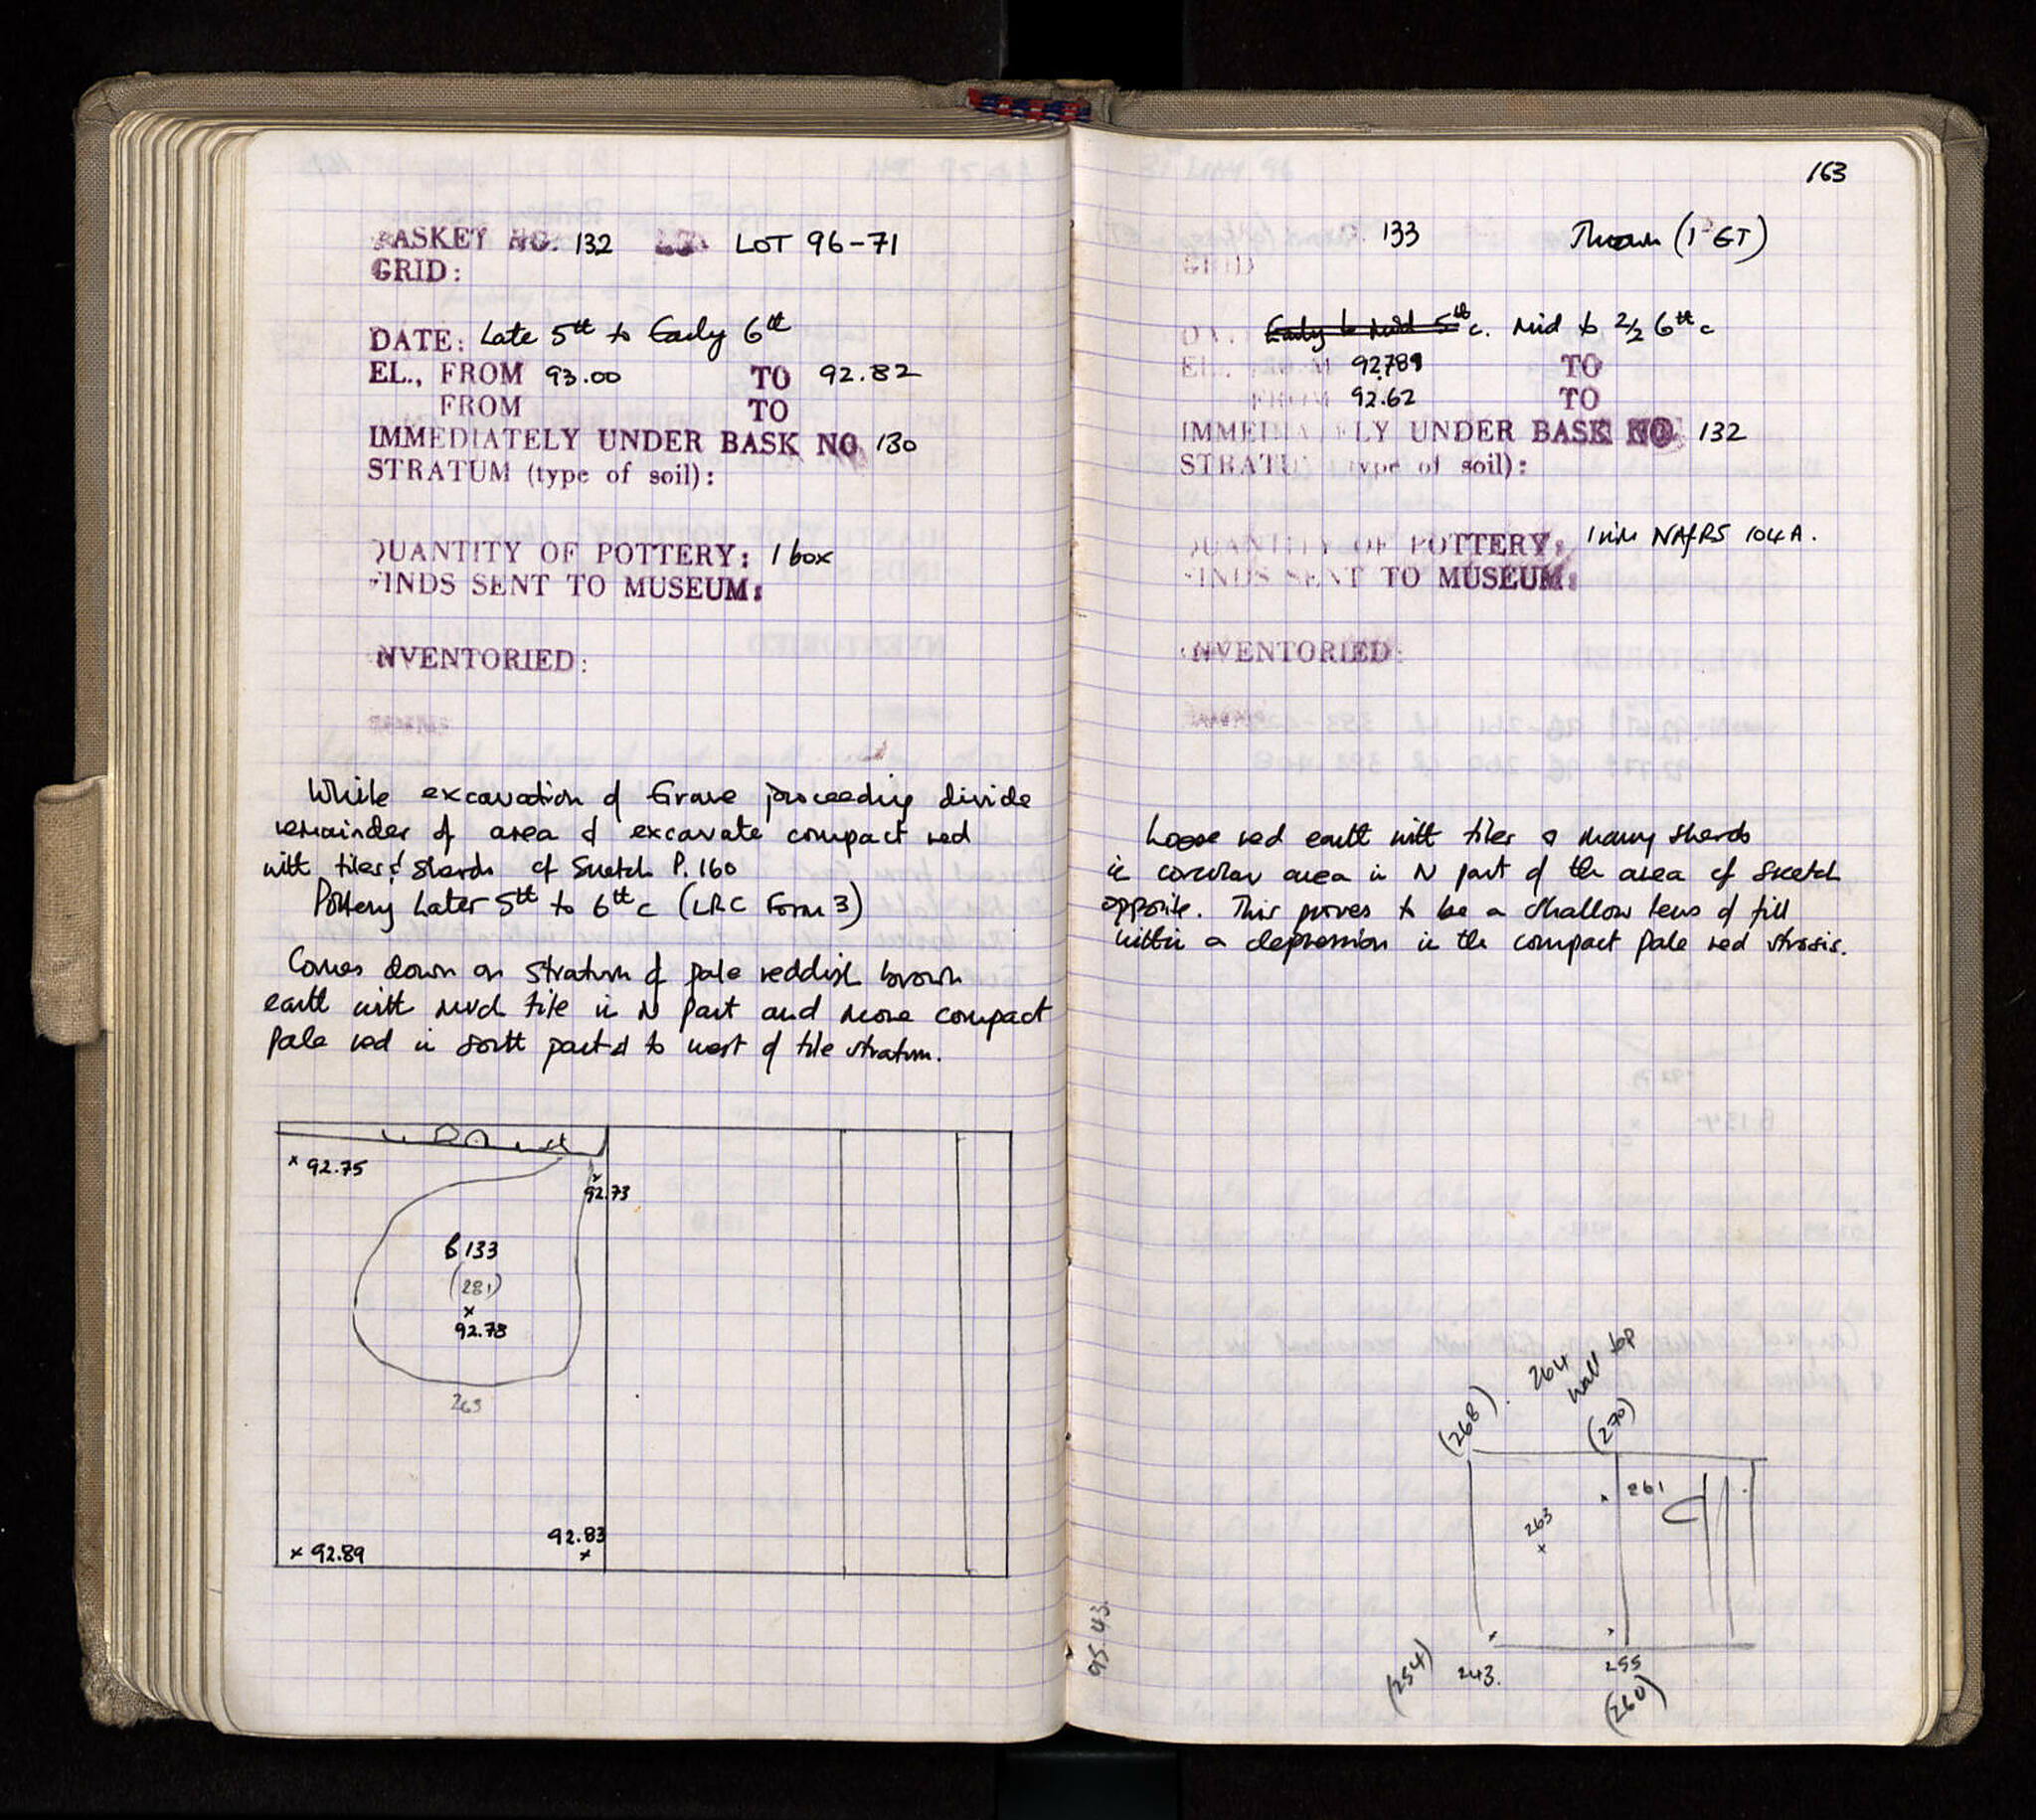 BASKET NO. 132 LOT 96-71
GRID:
DATE: Late 5th to Early 6th
EL., FROM 93.00 TO 92.82
FROM TO
IMMEDIATELY UNDER BASK NO 130
STRATUM (type of soil):
QUANTITY OF POTTERY: 1 box
FINDS SENT TO MUSEUM:
INVENTORIED:
While excavation of Grave proceeding divide
remainder of area & excavate compact red
with tiles & sherds cf Sketch P. 160
Pottery Later 5th to 6th c (LRC Form 3)
Comes down on stratum of pale reddish brown
earth with much tile in N Part and more compact
pale red in south part & to west of tile stratum.
x 92.75
x
92.73
B 133
(281)
x
92.78
263
92.83
x
x 92.89
163
133 Thrown (1 GT)
GRID
Early to Mid 5th c. Mid to 2/2 6th c
EL. FROM 92.789 TO
FROM 92.62 TO
IMMEDIATELY UNDER BASK NO. 132
STRATUM (type of soil):
QUANTITY OF POTTERY: 1 rim NAfRS 104A.
FINDS SENT TO MUSEUM:
INVENTORIED:
Loose red earth with tiles & many sherds
in circular area in N part of the area cf sketch
opposite. This proves to be a shallow lens of fill
within a depression in the compact pale red strosis.
264
wall top
(268)
(270)
261
263
x
(254)
243.
255
(260)
95.43